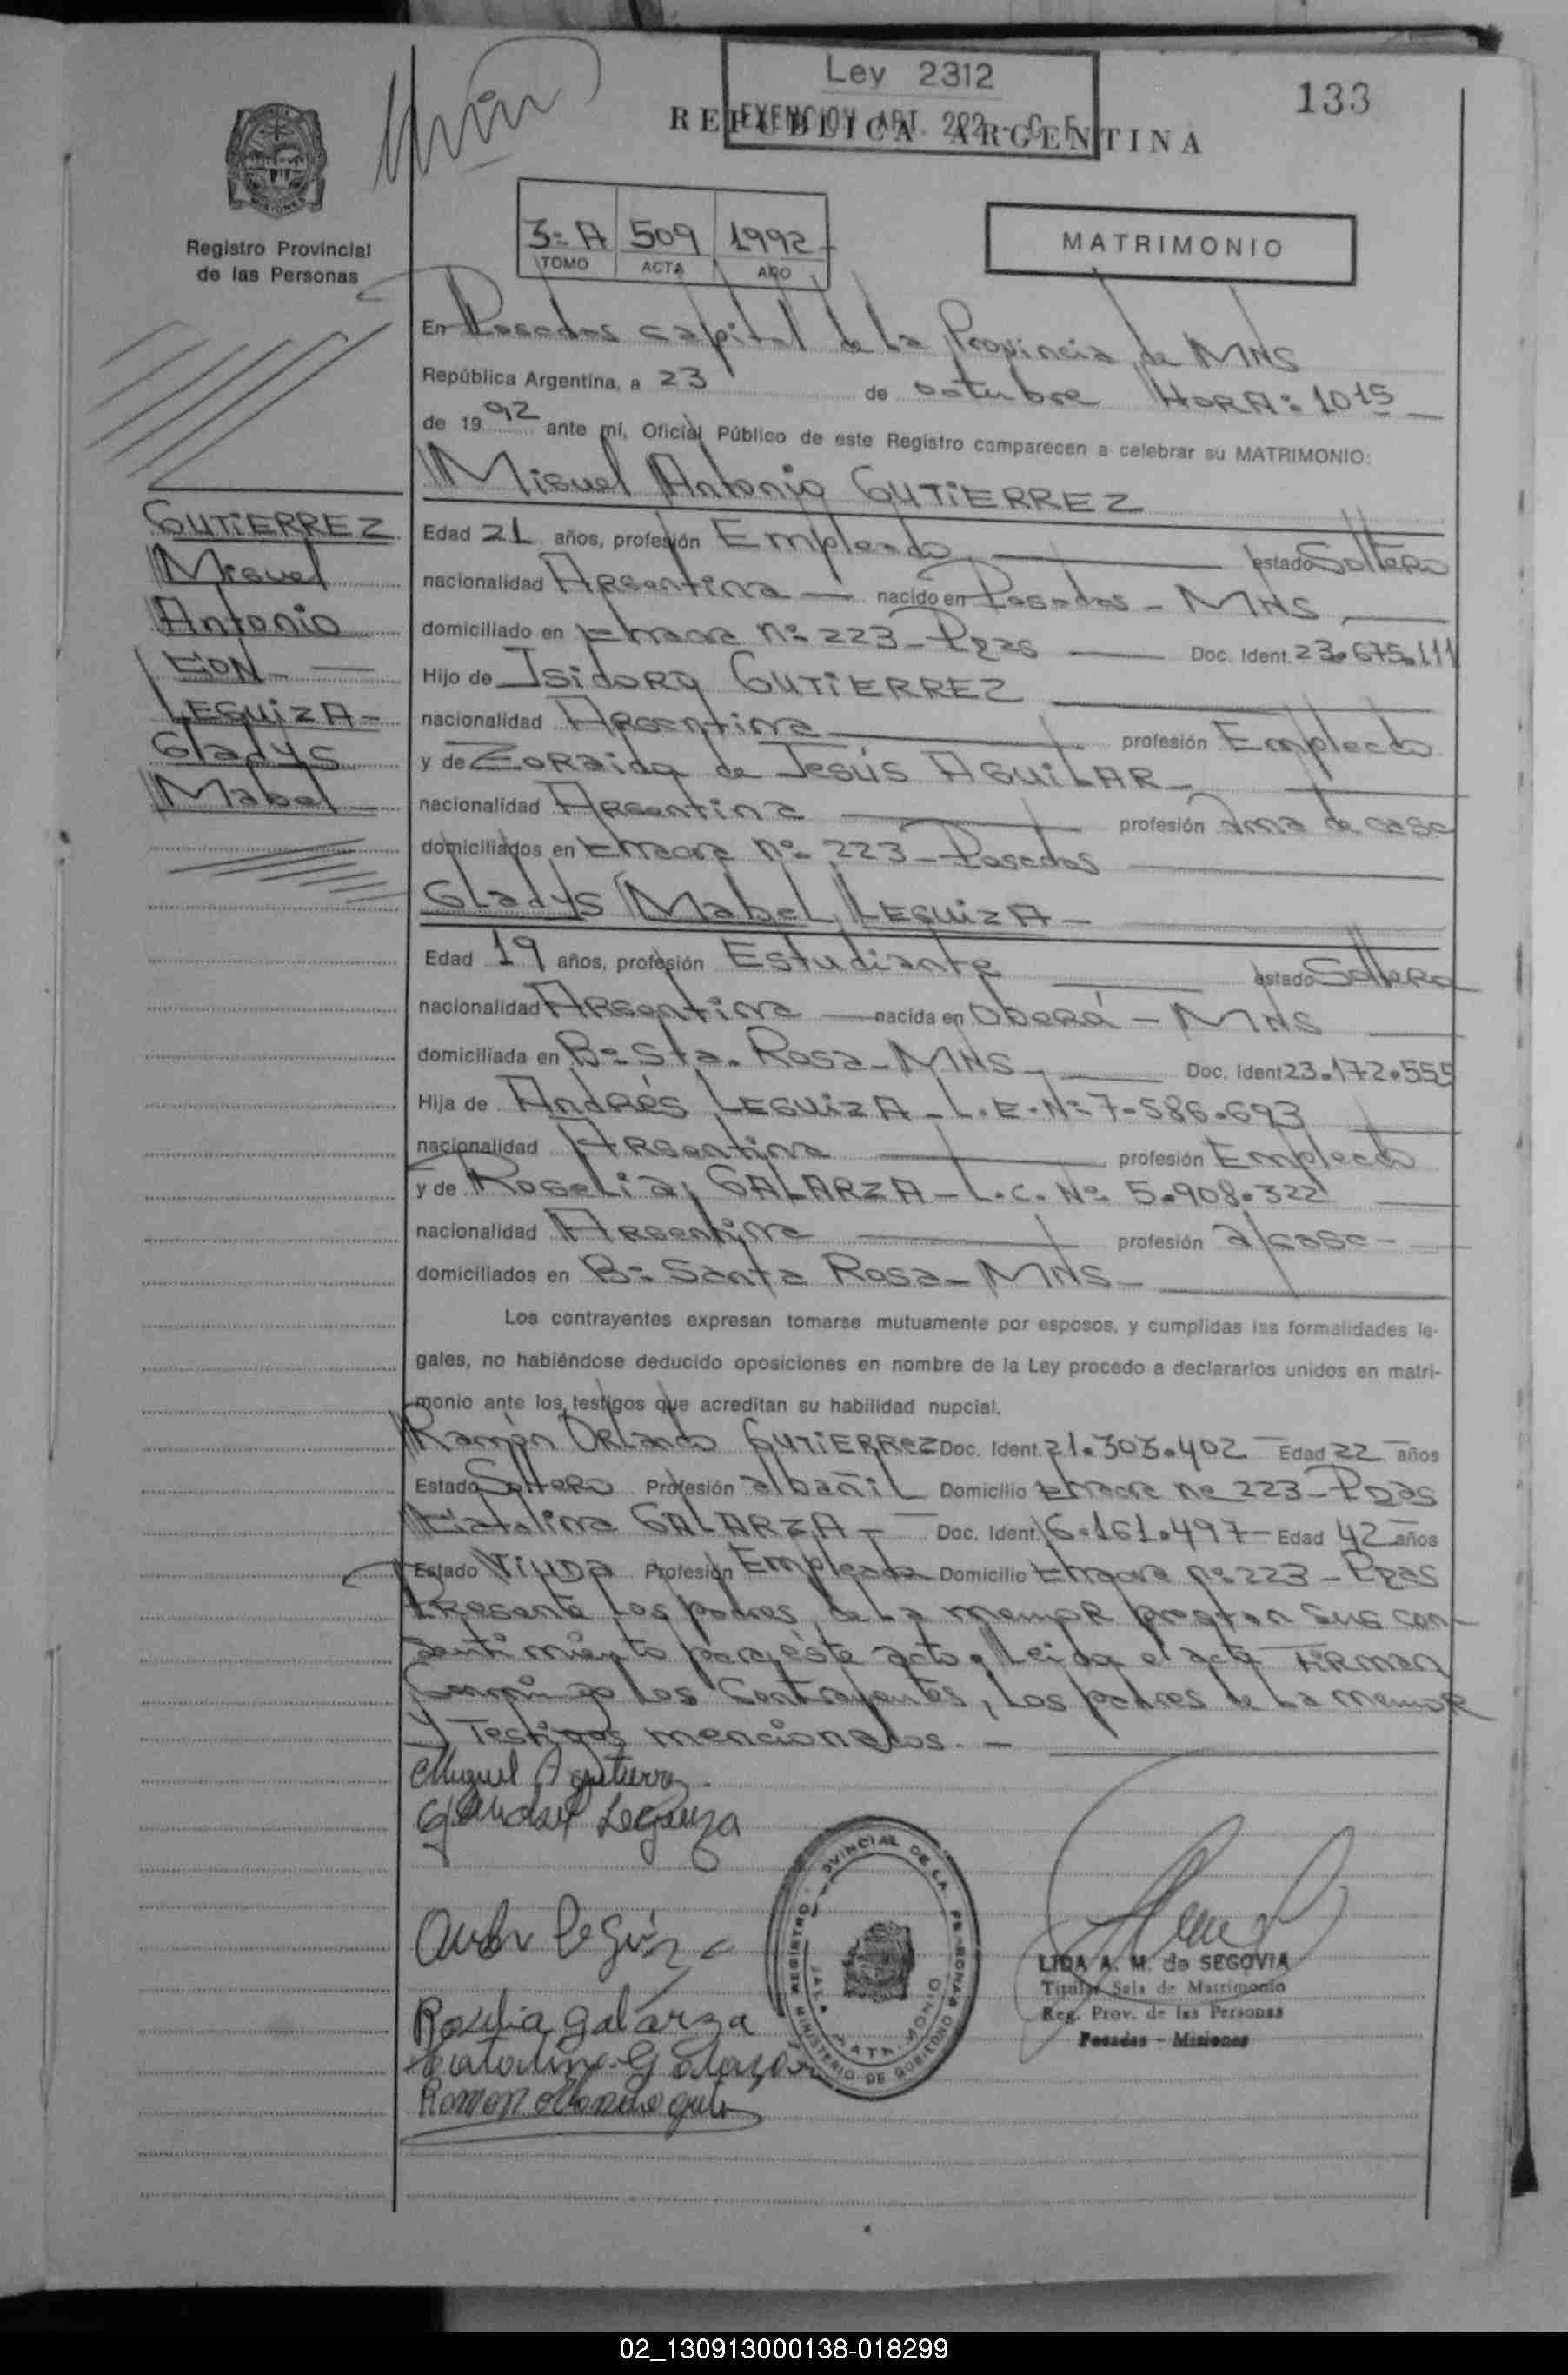 Ley 2312
EXENCION ART. 292 - C. F.
REPUBLICA ARGENTINA
133
MISIONES
Registro Provincial
de las Personas
3=A 509 1992-
TOMO ACTA AÑO
MATRIMONIO
En Posadas capital de la Provincia de MNS
República Argentina, a 23 de octubre HORA: 10 15
de 1992 ante mí, Oficial Público de este Registro comparecen a celebrar su MATRIMONIO:
Miguel Antonio GUTIERREZ
GUTIERREZ
Miguel
Antonio
CON
LEGUIZA-
Gladys
Mabel
Edad 21 años, profesión Empleado estado Soltero
nacionalidad Argentina nacido en Posadas - MNS
domiciliado en Nº 223 - Pdas Doc. Ident. 23.675.111
Hijo de Isidoro GUTIERREZ
nacionalidad Argentina profesión Empleado
y de Zoraida de Jesús AGUILAR
nacionalidad Argentina profesión ama de casa
domiciliados en Nº 223 - Posadas
Gladys Mabel LEGUIZA-
Edad 19 años, profesión Estudiante estado Soltera
nacionalidad Argentina nacida en Oberá - MNS
domiciliada en Bº Sta. Rosa - MNS Doc. Ident. 23.172.555
Hija de Andrés LEGUIZA - L.E. Nº 7.586.693
nacionalidad Argentina profesión Empleado
y de Roselia GALARZA - L.C. Nº 5.908.322
nacionalidad Argentina profesión a/casa-
domiciliados en Bº Santa Rosa - MNS-
Los contrayentes expresan tomarse mutuamente por esposos, y cumplidas las formalidades le-
gales, no habiéndose deducido oposiciones en nombre de la Ley procedo a declararlos unidos en matri-
monio ante los testigos que acreditan su habilidad nupcial.
Ramón Orlando GUTIERREZ Doc. Ident. 21.303.402 Edad 22 años
Estado Soltero Profesión albañil Domicilio Nº 223 - Pdas
Catalina GALARZA - Doc. Ident. 6.161.497 Edad 42 años
Estado Viuda Profesión Empleada Domicilio Nº 223 - Pdas
Presente los padres de la menor prestan sus con-
sentimiento para éste acto. Leída el acta FIRMAN
Conmigo los Contrayentes, los padres de la menor
y Testigos mencionados. -
Miguel A Gutierrez
Leguiza
Roselia Galarza
Catalina Galarza
REGISTRO PROVINCIAL DE LAS PERSONAS
MINISTERIO DE GOBIERNO
MATRIMONIO
LIDA A. M. de SEGOVIA
Titular Sala de Matrimonio
Reg. Prov. de las Personas
Posadas - Misiones
02_130913000138-018299